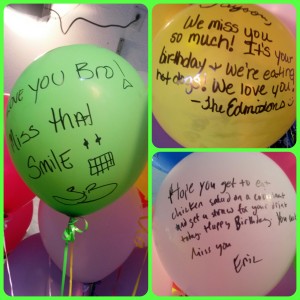 Love you Bro!
Miss that
Smile
We miss you
so much! It's your
birthday + we're eating
hot dogs! We love you!
-The Edmistons
Hope you get to eat
chicken salad on a croissant
and get a straw for your drink
today. Happy Birthday. You
Miss you
Eric